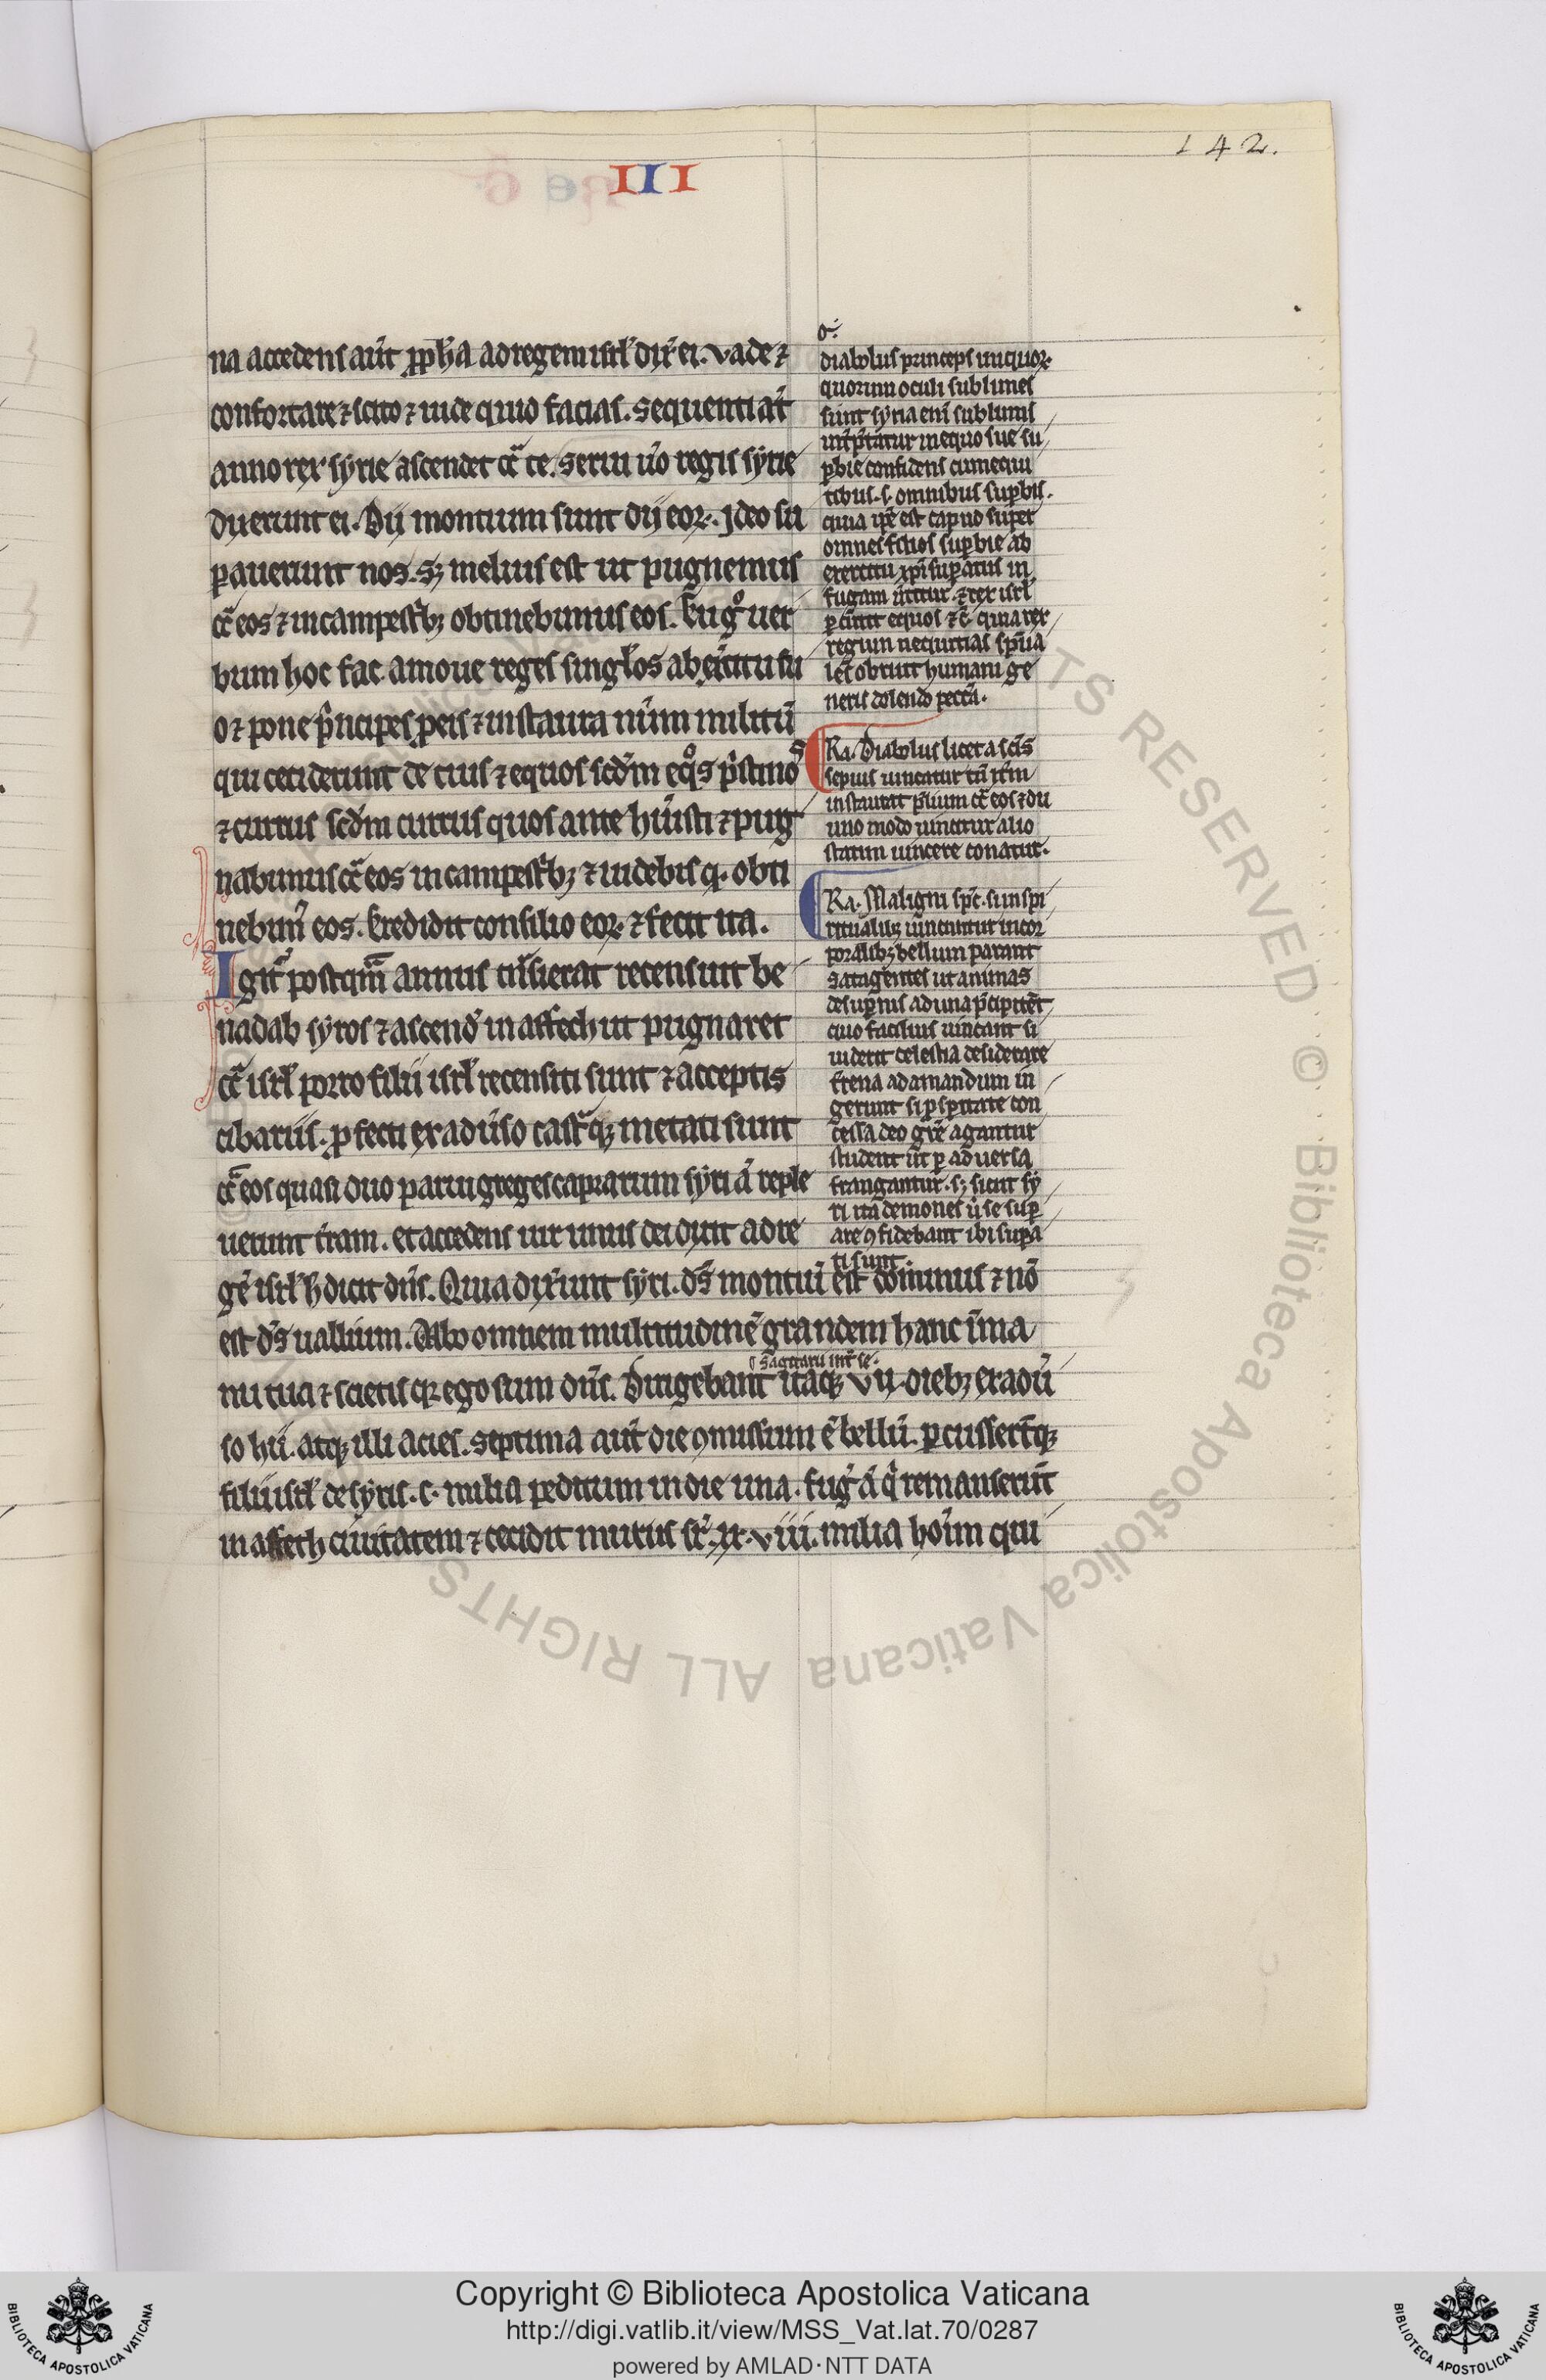 142.
III
na accedens aut̄ ꝓpħa ad regem isrł dix̄ ei. vade ⁊
confortare ⁊ scito ⁊ uide quid facias. sequenti a᷑t
anno rex syrie ascendet c̄t te. serui u̾o regis syrie
dixerunt ei. Dij montium sunt dij eoꝝ. Ideo su
ꝑauerunt nos. sꝫ melius est ut pugnemus
c̄t eos ⁊ in campestꝰbꝫ obtinebimus eos. tu g̊ uer
bum hoc fac. amoue reges singłos ab ex̾citu su
o ⁊ pone pͥncipes ꝓ eis ⁊ instaura num̄ militū
qui ceciderunt de tuis ⁊ equos scd̄m eqͦs pͥstinos
⁊ currus scd̄m currus quos ante hūisti ⁊ pug
nabimus c̄t eos in campestꝰbꝫ ⁊ uidebis q. obti
nebim̾ eos. credidit consilio eoꝝ ⁊ fecit ita.
Igit̾ postqm̄ annus tn̄sierat recensuit be
nadab syros ⁊ ascend̾ in affech ut pugnaret
c̄t isrł porro filii isrł recensiti sunt ⁊ acceptis
cibariis. ꝓfecti ex adu̾so castꝰqꝫ metati sunt
c̄t eos quasi duo parui greges caprarum syri a᷑ reple
uerunt tr̄am. et accedens uir unus dei dixit ad re
gē isrł h̾ dicit dn̄s. Quia dix̄unt syri. ds̄ montiū est dominus ⁊ nō
est ds̄ uallium. Dabo omnem multitudinē grandem hanc ī ma
nu tua ⁊ scietis qꝛ ego sum dn̄s. Dirigebant itaqꝫ vii. diebꝫ ex adu̾
so hii. atqꝫ illi acies. septima aut̄ die ꝯmissum ē bellū. ꝑcusser̄tqꝫ
filii isrł de syris. c. milia peditum in die una. fug̾ a᷑ qͥ remanserūt
in affech ciuitatem ⁊ cecidit murus sr̄. xx. viii. milia hoīm qui
diabolus princeps iniquoꝝ.
quorum oculi sublimes
sunt syria eni sublimis
int̾p̄tatur in equo sue su
ꝑbie confidens cum equi
tibus. s. omnibus suꝑbis.
quia ip̄e est caput super
omnes filios suꝑbie ab
exercitu xp̄i suꝑatus in
fugam u̾titur. ⁊ rex isrł
ꝑcutit equos ⁊c̄ quia rex
regum nequitias sp̄ua
les obruit humani ge
neris dolendo pecca.
Ra. Diabolus licet a sc̄is
sepius uincatur tn̄ it̾m
instaurat p̄lium c̄t eos ⁊ dū
uno modo uincitur alio
statim uincere conatur.
Ra. Maligni sp̄c. si in spi
ritualibꝫ uincuntur in cor
poralibꝫ bellum parant
satagentes ut animas
de suꝑnis ad una p̄cipitēt
quo facilius uincant si
uiderit celestia desiderare
t̾rena ad amandum in
gerunt si ꝓsperitate con
cessa deo gr̄e agantur
student ut ꝑ aduersa
frangantur. sꝫ sicut sy
ri ita demones u̾ se suꝑ
are ꝯfidebant ibi supa
ti sunt.
sagittarii int̾ se.
Copyright © Biblioteca Apostolica Vaticana
http://digi.vatlib.it/view/MSS_Vat.lat.70/0287
powered by AMLAD·NTT DATA
BIBLIOTECA APOSTOLICA VATICANA
BIBLIOTECA APOSTOLICA VATICANA
ALL RIGHTS RESERVED © Biblioteca Apostolica Vaticana